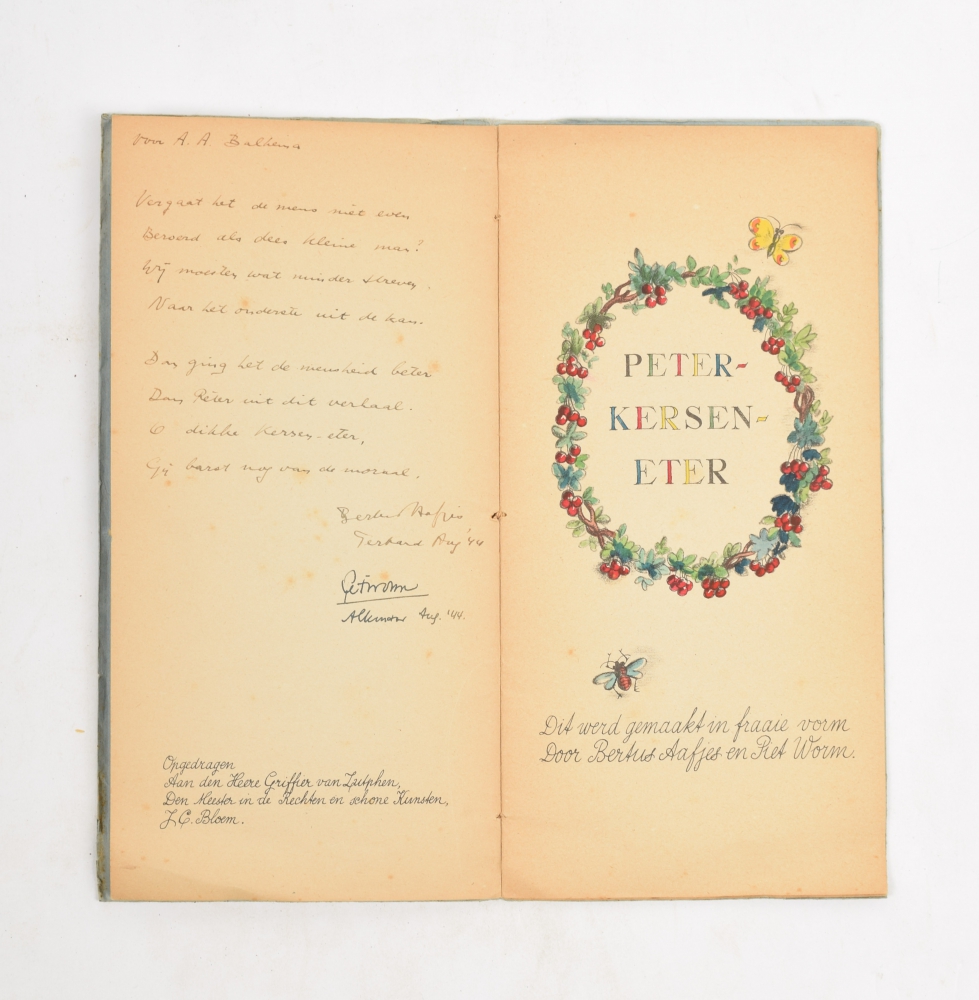 voor A. A. Balkema
Vergaat het de mens niet even
Beroerd als deez kleine man?
Wij moesten wat minder streven
Naar het onderste uit de kan.
Dan ging het de mensheid beter
Dan Peter uit dit verhaal.
O dikke Kersen-eter,
Gij barst nog van de moraal.
Bertus Aafjes
Aug '44
Piet Worm
Alkmaar Aug. '44.
Opgedragen
Aan den Heere Griffier van Zutphen,
Den Meester in de Rechten en schone Kunsten,
J.C. Bloem.
PETER-
KERSEN-
ETER
Dit werd gemaakt in fraaie vorm
Door Bertus Aafjes en Piet Worm.